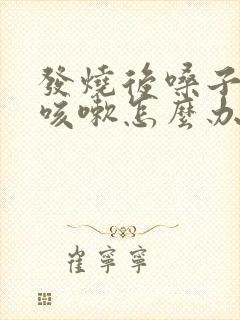 發燒後嗓子
咳嗽怎麼办
崔寧寧